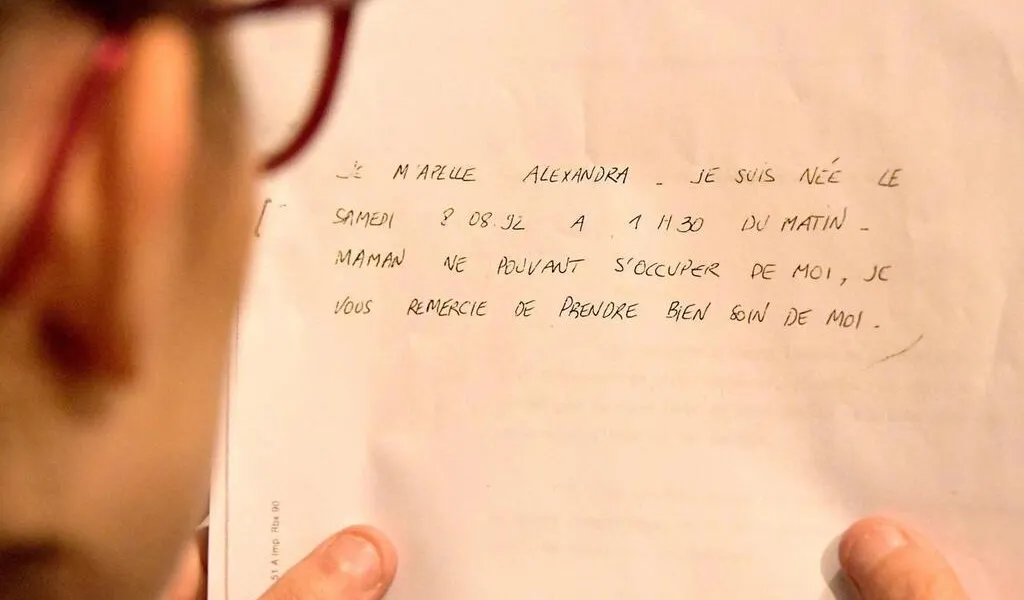 JE M'APELLE ALEXANDRA. JE SUIS NÉE LE
SAMEDI 8 08.92 A 1 H30 DU MATIN.
MAMAN NE POUVANT S'OCCUPER DE MOI, JE
VOUS REMERCIE DE PRENDRE BIEN SOIN DE MOI.
51 A Imp. Rbx 90